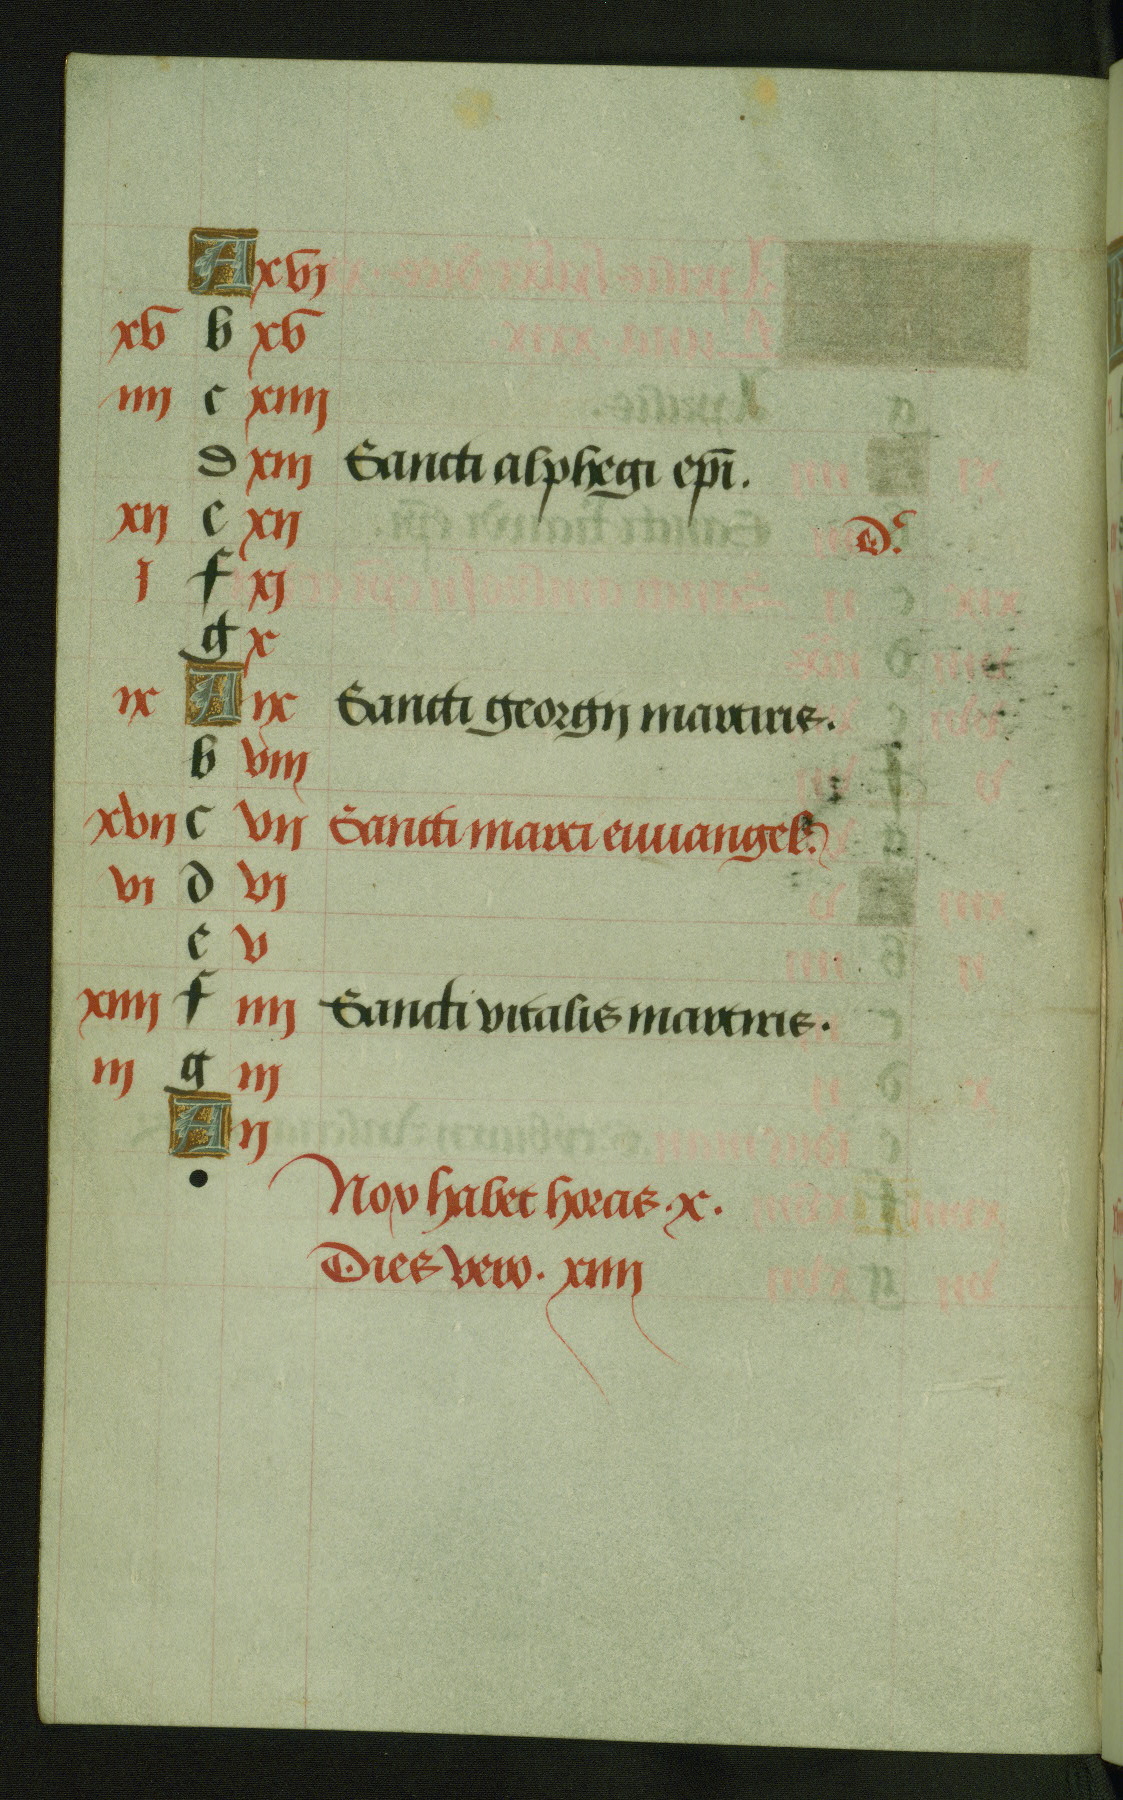 A xvj
xv b xv
iiij c xiiij
d xiij Sancti alphegi ep̄i.
xij e xij D.
j f xj
g x
ix A ix Sancti georgij martiris.
b viij
xvij c vij Sancti marci euuangel.
vi d vj
e v
xiiij f iiij Sancti vitalis martiris.
iij g iij
A ij
Nox habet horas .x.
Dies vero . xiiij